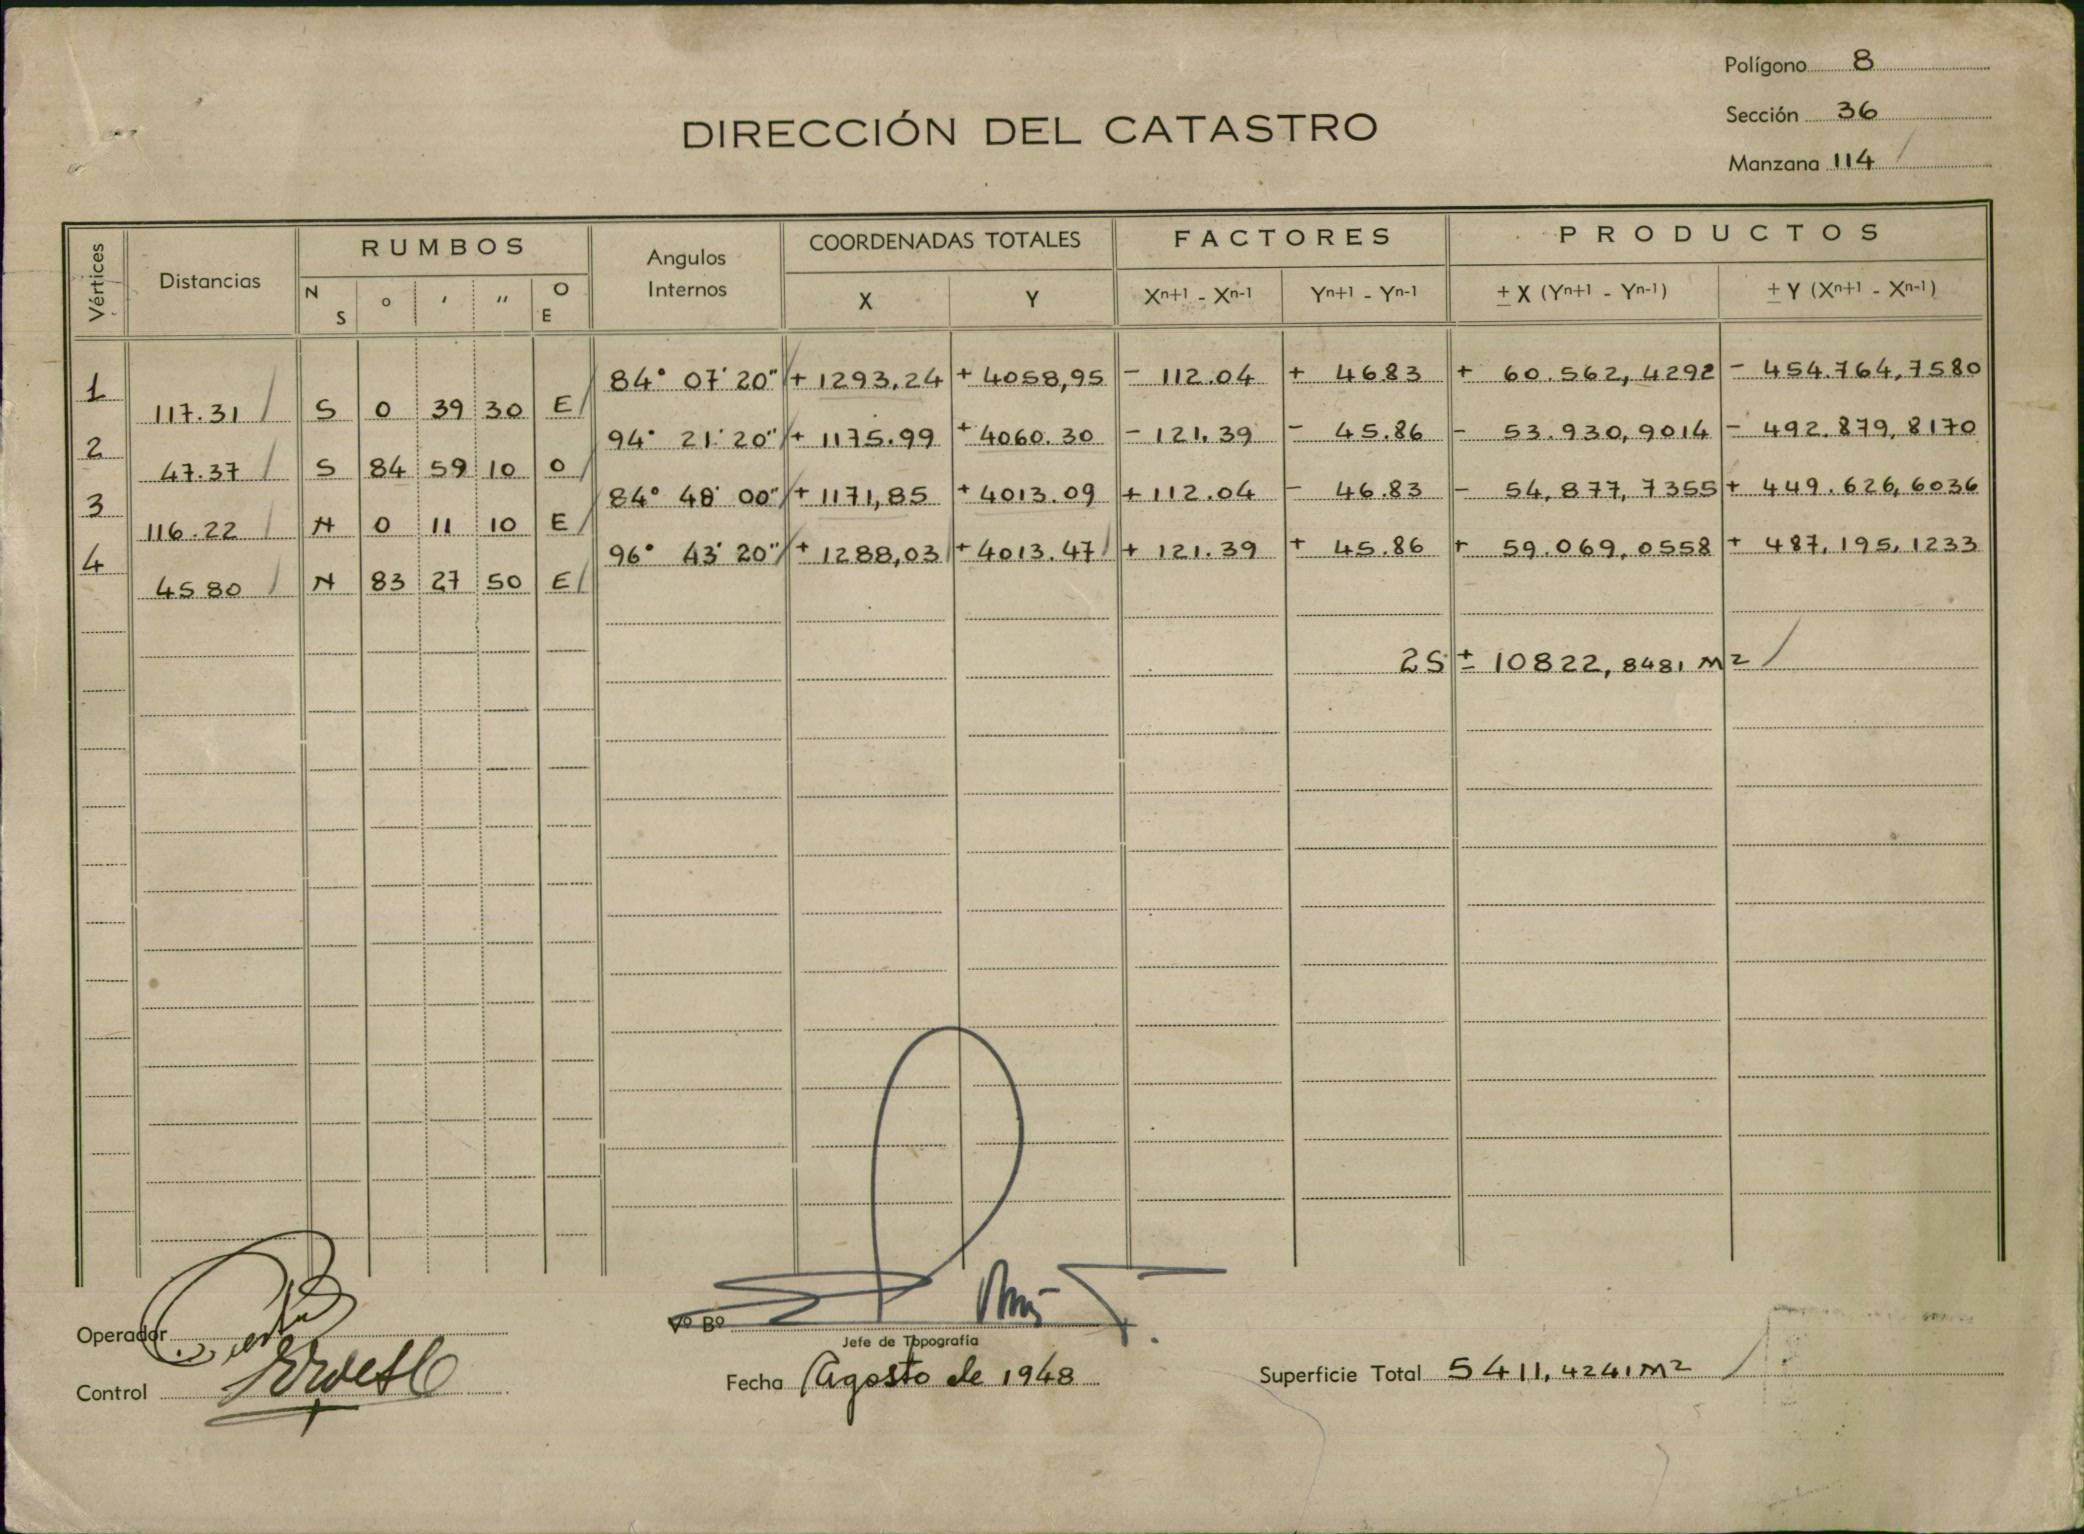 Polígono 8
DIRECCIÓN DEL CATASTRO
Sección 36
Manzana 114
Vértices Distancias RUMBOS Angulos Internos COORDENADAS TOTALES FACTORES PRODUCTOS
N S o ′ ″ O E X Y Xn+1 - Xn-1 Yn+1 - Yn-1 ± X (Yn+1 - Yn-1) ± Y (Xn+1 - Xn-1)
1 84° 07' 20" + 1293,24 + 4058,95 - 112.04 + 46.83 + 60.562,4292 - 454.764,7580
117.31 S 0 39 30 E
2 94° 21' 20" + 1175.99 + 4060.30 - 121.39 - 45.86 - 53.930,9014 - 492.879,8170
47.37 S 84 59 10 O
3 84° 48' 00" + 1171,85 + 4013.09 + 112.04 - 46.83 - 54,877,7355 + 449.626,6036
116.22 N 0 11 10 E
4 96° 43' 20" + 1288,03 + 4013.47 + 121.39 + 45.86 + 59.069,0558 + 487,195,1233
45 80 N 83 27 50 E
2S ± 10822,8481 M2
Operador
Vº Bº
Jefe de Topografía
Control
Fecha Agosto de 1948
Superficie Total 5411,4241 M2